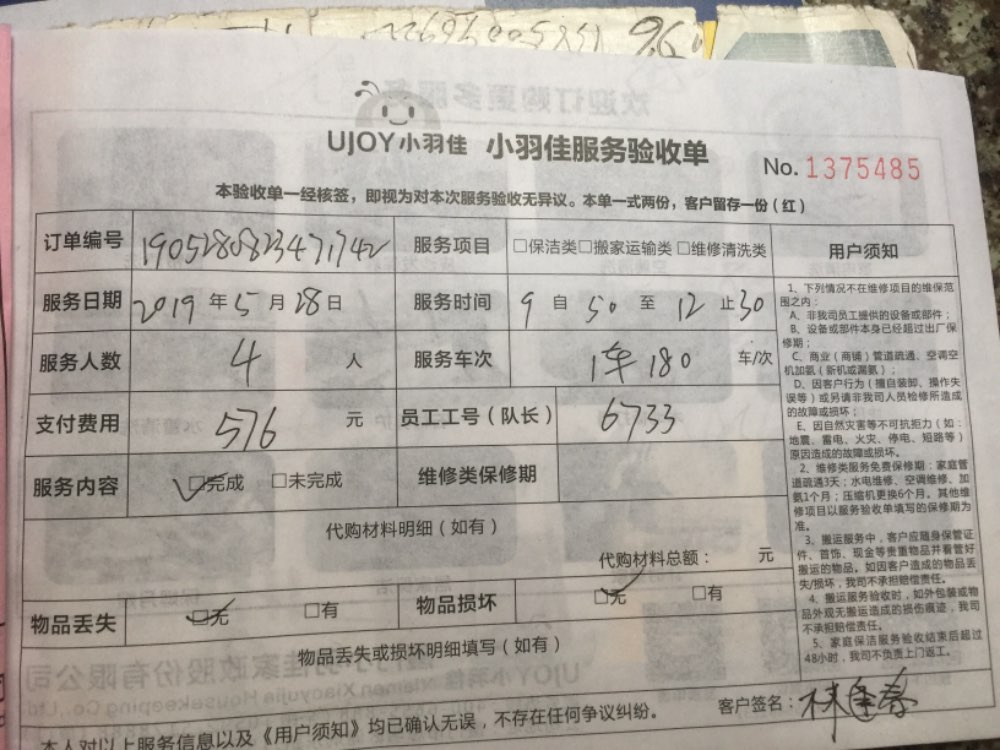 UJOY小羽佳 小羽佳服务验收单
No. 1375485
本验收单一经核签，即视为对本次服务验收无异议。本单一式两份，客户留存一份（红）
订单编号 1905280823471742 服务项目 □保洁类□搬家运输类 □维修清洗类
服务日期 2019 年 5 月 28 日 服务时间 9 自 50 至 12 止 30
服务人数 4 人 服务车次 1车180 车/次
支付费用 576 元 员工工号（队长） 6733
服务内容 □完成 □未完成 维修类保修期
代购材料明细（如有）
代购材料总额： 元
物品丢失 □无 □有 物品损坏 □无 □有
物品丢失或损坏明细填写（如有）
客户签名：
本人对以上服务信息以及《用户须知》均已确认无误，不存在任何争议纠纷。
用户须知
1、下列情况不在维修项目的维保范
围之内：
A、非我司员工提供的设备或部件；
B、设备或部件本身已经超过出厂保
修期；
C、商业（商铺）管道疏通、空调空
机加氨（新机或漏氨）；
D、因客户行为（擅自装卸、操作失
误等）或另请非我司人员检修所造成
的故障或损坏；
E、因自然灾害等不可抗拒力（如：
地震、雷电、火灾、停电、短路等）
原因造成的故障或损坏。
2、维修类服务免费保修期：家庭管
道疏通3天；水电维修、空调维修、加
氨1个月；压缩机更换6个月。其他维
修项目以服务验收单填写的保修期为
准。
3、搬运服务中，客户应随身保管证
件、首饰、现金等贵重物品并看管好
搬运的物品。如因客户造成的物品丢
失/损坏，我司不承担赔偿责任。
4、搬运服务验收时，如外包装或物
品外观无搬运造成的损伤痕迹，我司
不承担赔偿责任。
5、家庭保洁服务验收结束后超过
48小时，我司不负责上门返工。